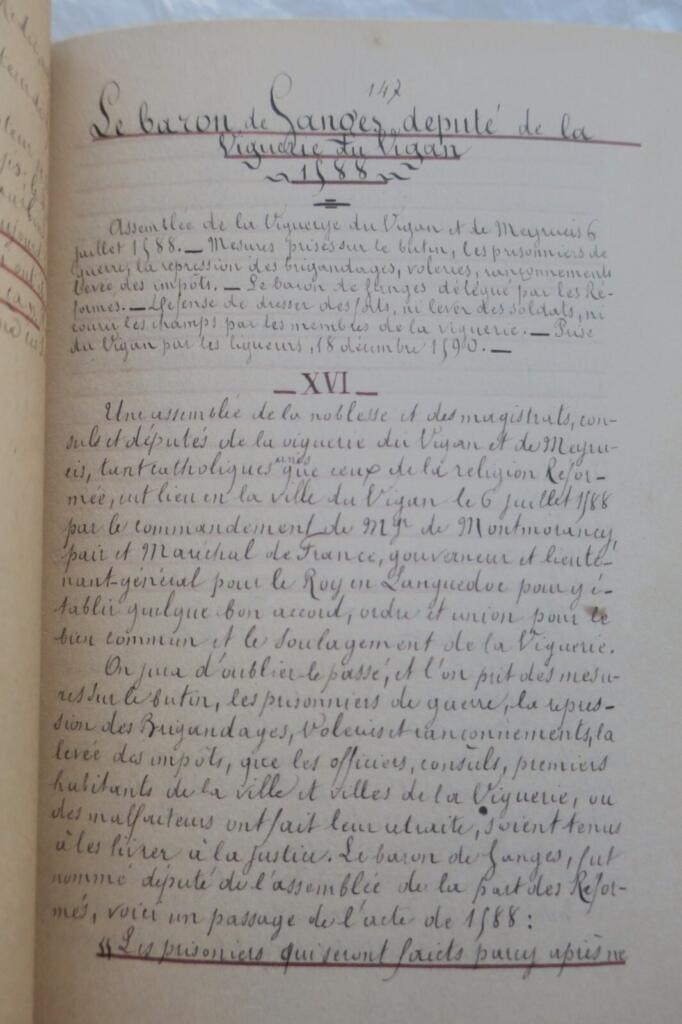 147
Le baron de Ganges député de la
Viguerie du Vigan
1588
Assemblée de la Viguerie du Vigan et de Meyrueis 6
juillet 1588. — Mesures prises sur le butin, les prisonniers de
guerre, la répression des brigandages, voleries, rançonnements
levée des impôts. — Le baron de Ganges délégué par les Ré-
formés. — Défense de dresser des forts, ni lever des soldats, ni
courir les champs par les membres de la viguerie. — Prise
du Vigan par les ligueurs, 18 décembre 1590. —
— XVI —
Une assemblée de la noblesse et des magistrats, con-
suls et députés de la viguerie du Vigan et de Meyru-
eis, tant catholiques unis que ceux de la religion Réfor-
mée, eut lieu en la ville du Vigan le 6 juillet 1588
par le commandement de Mgr de Montmorancy,
pair et Maréchal de France, gouverneur et lieute-
nant-général pour le Roy en Languedoc pour y é-
tablir quelque bon accord, ordre et union pour le
bien commun et le soulagement de la Viguerie.
On jura d'oublier le passé, et l'on prit des mesu-
res sur le butin, les prisonniers de guerre, la répres-
sion des Brigandages, Voleries et rançonnements, la
levée des impôts, que les officiers, consuls, premiers
habitants de la ville et villes de la Viguerie, ou
des malfaiteurs ont fait leur retraite, soient tenus
à les livrer à la justice. Le baron de Ganges, fut
nommé député de l'assemblée de la part des Réfor-
més, voici un passage de l'acte de 1588 :
« Les prisoniers qui seront faicts par cy après ne